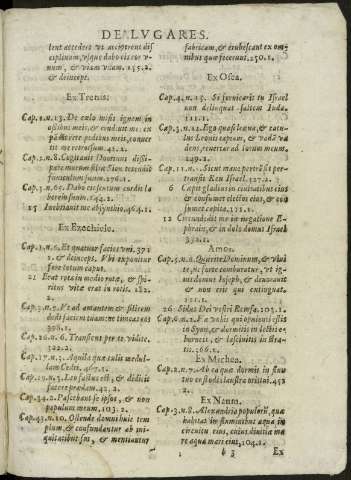 DE LVGARES.
lent accedere vt acciperent dis
ciplinam, vsque dabo eis cor v-
num, & viam vnam. 155.2.
& deincept.
Ex Trenis.
Cap.1.n.13. De cælo misit ignem in
ossibus meis, & erudiuit me: ex
pãdit rete pedibus meis, conuer
tit me retrorsum. 42.2.
Cap.2.n.8. Cogitauit Dominus dissi-
pare murum filiæ Sion tetendit
funiculum suum. 276.1.
Cap.3.n.65. Dabo eis scutum cordis la
borem suum. 144.2.
15 Inebriauit me absynthio. 464.1.
Ex Ezechiele.
Cap.1.n.6. Et quatuor facies vni. 371
2. & deinceps. Vbi exponitur
fere totum caput.
21 Erat rota in medio rotæ, & spi-
ritus vitæ erat in rotis. 182.
2.
Cap.3.n.7. Vt adamantem & silicem
dedi faciem tuam: ne timeas eos
396.1.
Cap.16.n.6. Transiens per te vidi te.
322.2.
Cap.17.n.3. Aquila quæ tulit medul-
lam Cedri. 467.1.
Cap.19.n.3. Leo factus est, & didicit
facere prædam. 42.2.
Cap.34.2. Pascebant se ipsos, & non
populum meum. 103.2.
Cap.43.n.10. Ostende domui huic tem
plum, & confundantur ab ini-
quitatibus suis, & mentiantur
fabricam, & erubescant ex om-
nibus quæ fecerunt. 250.1.
Ex Osea.
Cap.4.n.15. Si fornicaris tu Israel
non delinquat saltem Iuda.
111.1.
Cap.5.n.14. Ego quasi leæna, & catu-
lus Leonis capiam, & vadã va
dens, reuertar ad locum meum.
249.1.
Cap.11.n. Sicut mane pertrãsijt per-
transijt Rex Israel. 127.2.
6 Caput gladius in ciuitatibus eius
& consumet electos eius, & co-
medet capita. 111.1.
12 Circumdedit me in negatione E-
phrain, & in dolo domus Israel
352.1.
Amos.
Cap.5.n.6. Quærite Dominum, & viui
te, ne forte comburatur, vt ig-
nis domus Ioseph, & deuoret
& non erit qui extinguat.
151.1.
26 Sidus Dei vestri Remfa. 103.1.
Cap.6.n.1. Væ vobis qui opulenti estis
in Syon, & dormitis in lectis e-
burneis, & lasciuitis in stra-
tis. 166.1.
Ex Michea.
Cap.2.n.7. Ab ea quæ dormit in sinu
tuo custodi claustra oris tui. 452
2.
Ex Naum.
Cap.3.n.8. Alexandria populorũ, quæ
habitat in fluminibus aquæ in
circuitu eius, cuius diuitiæ ma
re aquæ muri eius. 104.1.
Ex